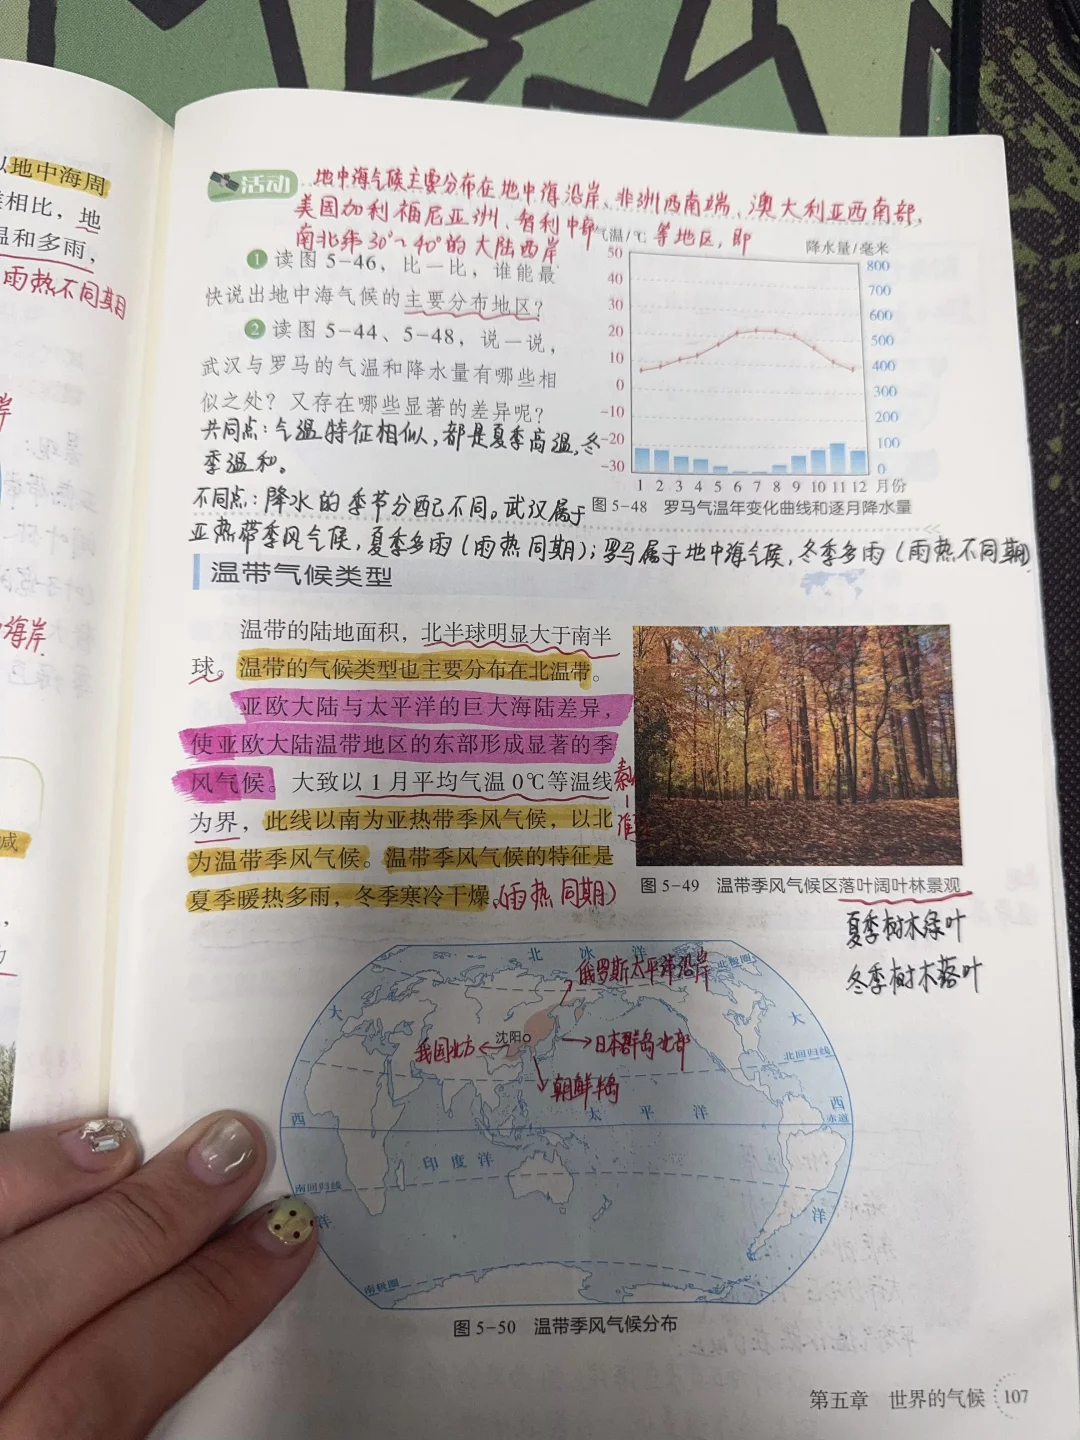 以地中海周
相比，地
温和多雨，
雨热不同期
活动
地中海气候主要分布在地中海沿岸、非洲西南端、澳大利亚西南部，
美国加利福尼亚洲、智利中部等地区，即
南北纬30°~40°的大陆西岸
1 读图 5-46，比一比，谁能最
快说出地中海气候的主要分布地区？
2 读图 5-44、5-48，说一说，
武汉与罗马的气温和降水量有哪些相
似之处？又存在哪些显著的差异呢？
共同点：气温特征相似，都是夏季高温，冬
季温和。
不同点：降水的季节分配不同。武汉属于
亚热带季风气候，夏季多雨（雨热同期）；罗马属于地中海气候，冬季多雨（雨热不同期）
气温/℃
降水量/毫米
50 800
40 700
30 600
20 500
10 400
0 300
-10 200
-20 100
-30 0
1 2 3 4 5 6 7 8 9 10 11 12 月份
图 5-48 罗马气温年变化曲线和逐月降水量
温带气候类型
温带的陆地面积，北半球明显大于南半
球。温带的气候类型也主要分布在北温带。
亚欧大陆与太平洋的巨大海陆差异，
使亚欧大陆温带地区的东部形成显著的季
风气候。大致以 1 月平均气温 0℃等温线
为界，此线以南为亚热带季风气候，以北
为温带季风气候。温带季风气候的特征是
夏季暖热多雨，冬季寒冷干燥。（雨热同期）
图 5-49 温带季风气候区落叶阔叶林景观
夏季树木绿叶
冬季树木落叶
北冰洋
北极圈
俄罗斯太平洋沿岸
大
大
沈阳
我国北方
日本群岛北部
北回归线
朝鲜半岛
太平洋
西
西
赤道
印度洋
南回归线
洋
洋
南极圈
图 5-50 温带季风气候分布
第五章 世界的气候 107